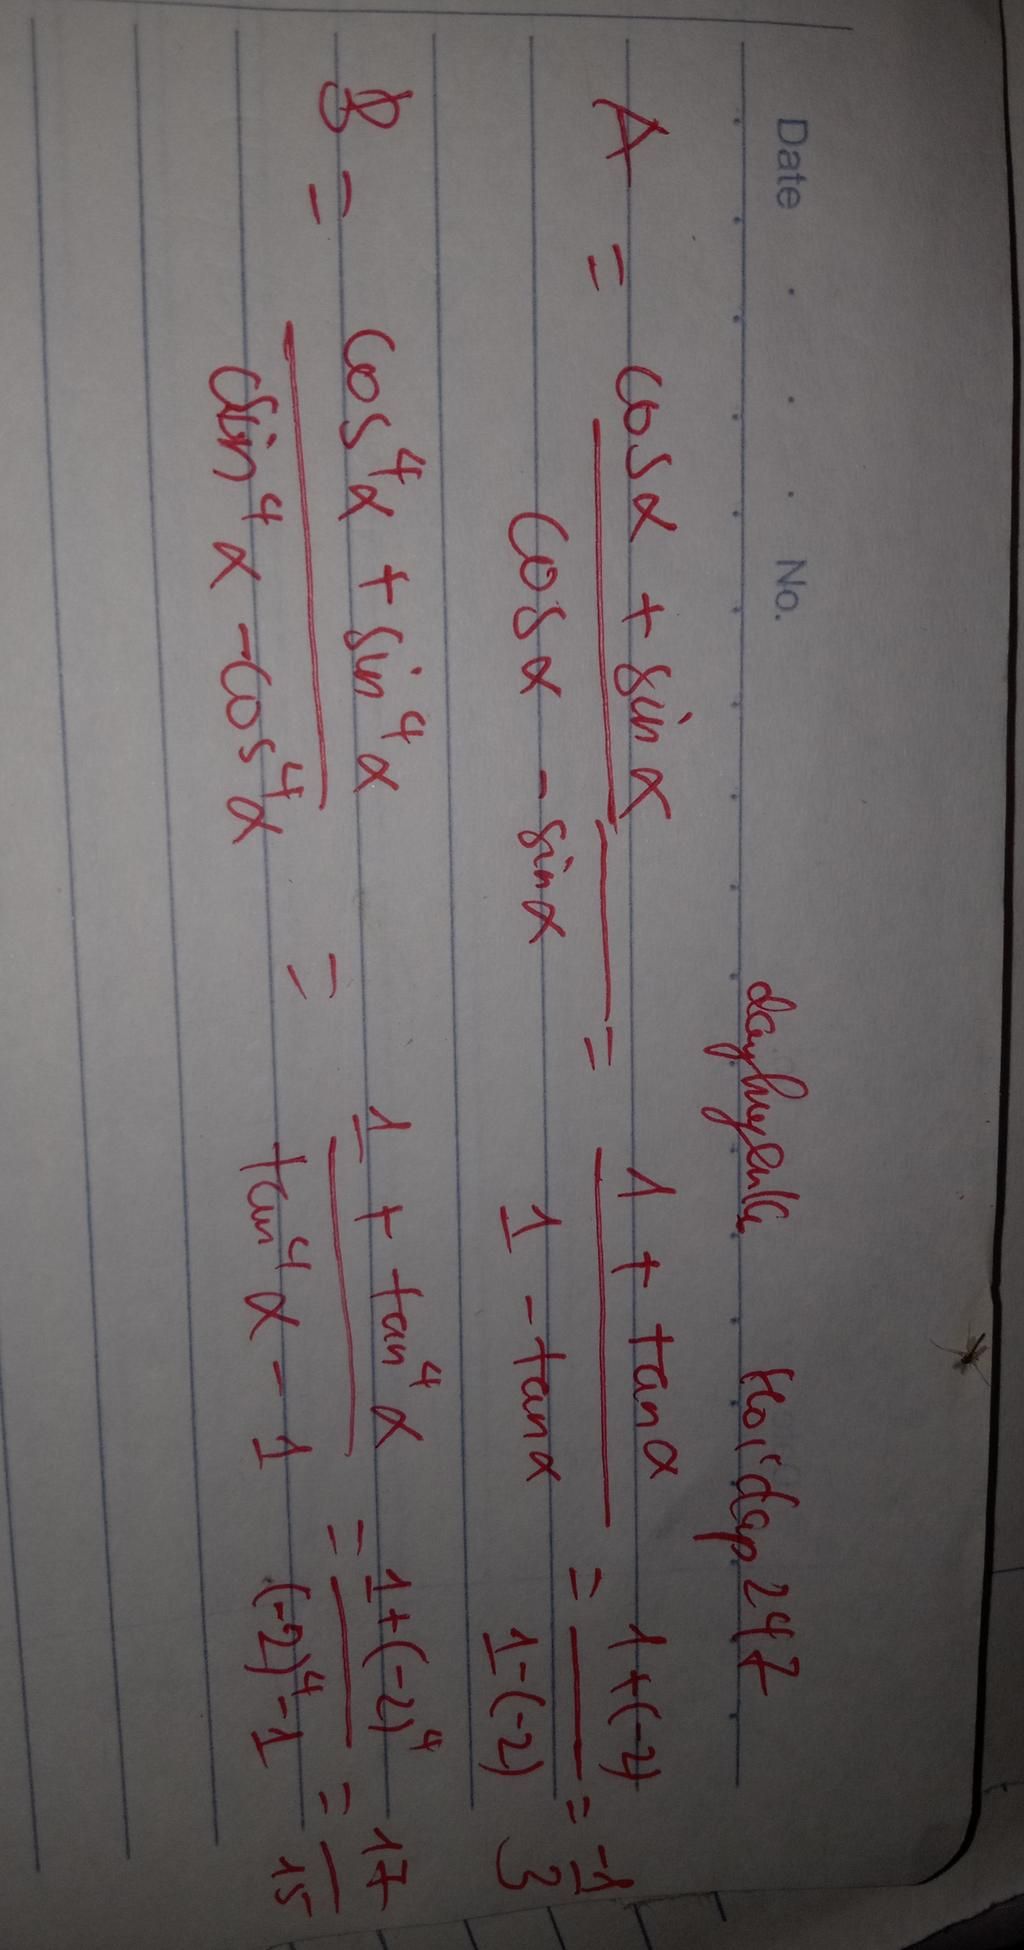 Date . . . No.
Hoidap247
A = cosα + sinα / cosα - sinα = 1 + tanα / 1 - tanα = 1+(-2) / 1-(-2) = -1 / 3
B = cos⁴α + sin⁴α / sin⁴α - cos⁴α = 1 + tan⁴α / tan⁴α - 1 = 1+(-2)⁴ / (-2)⁴-1 = 17 / 15